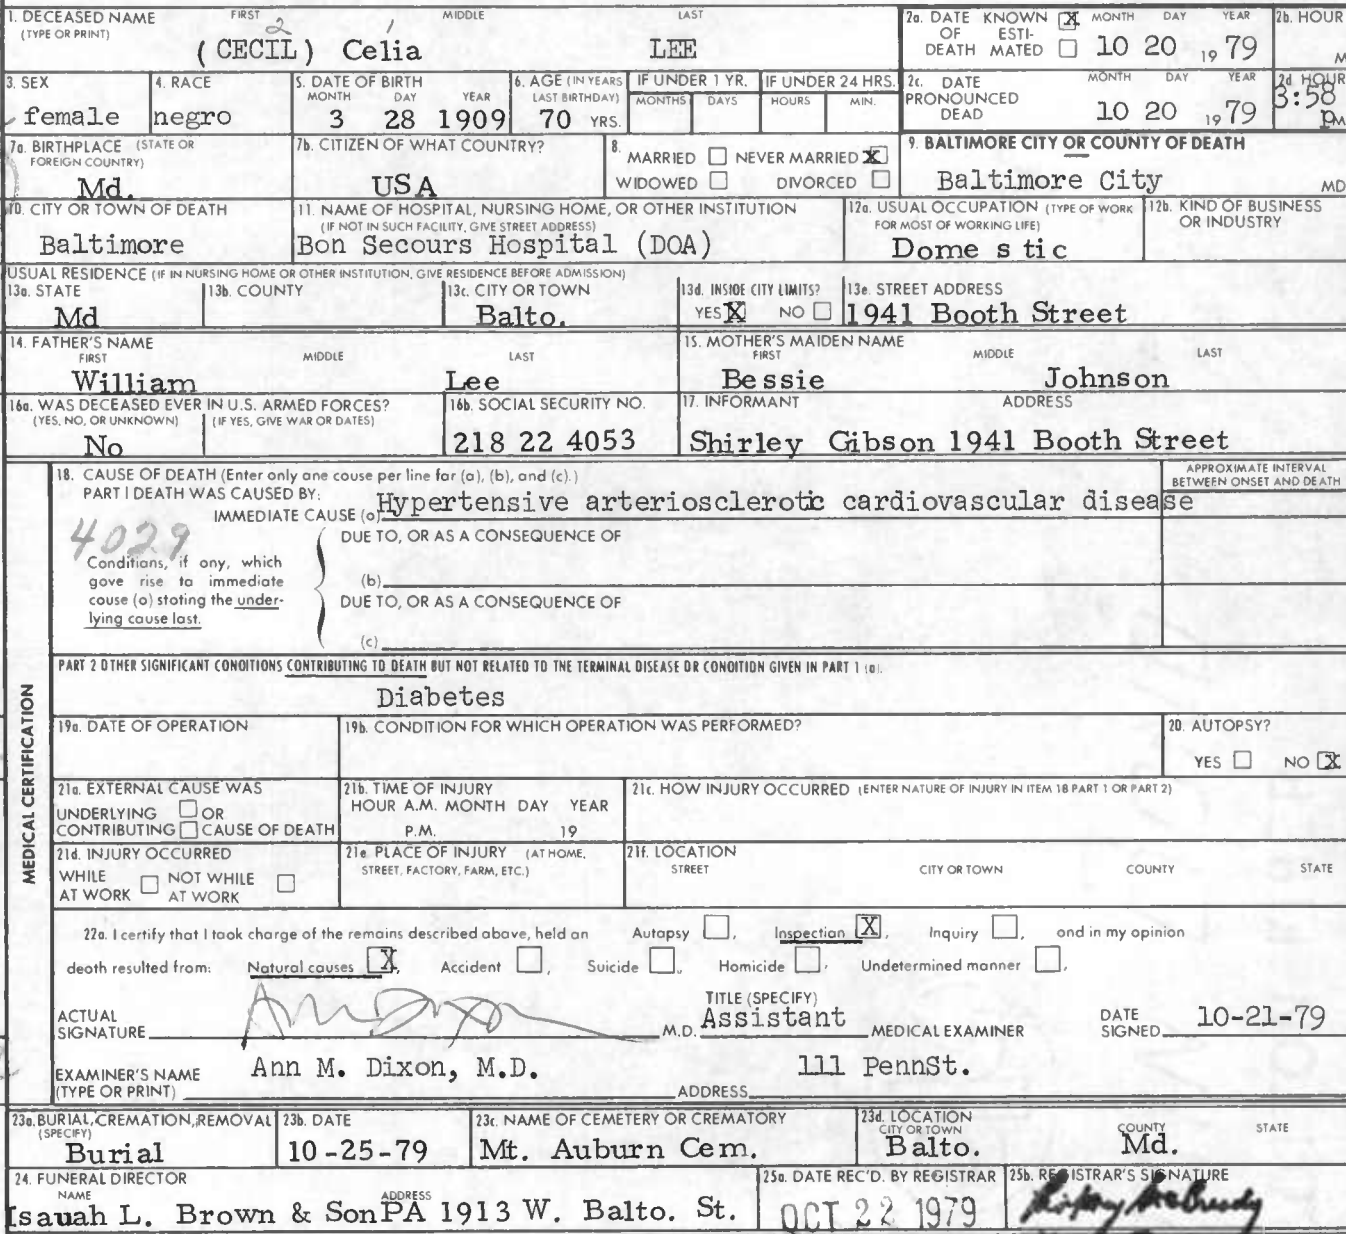 1. DECEASED NAME FIRST MIDDLE LAST
(TYPE OR PRINT)
2 1
(CECIL) Celia LEE
2a. DATE KNOWN X MONTH DAY YEAR
OF ESTI-
DEATH MATED 10 20 19 79
2b. HOUR
M
3. SEX
female
4. RACE
negro
5. DATE OF BIRTH
MONTH DAY YEAR
3 28 1909
6. AGE (IN YEARS
LAST BIRTHDAY)
70 YRS.
IF UNDER 1 YR.
MONTHS DAYS
IF UNDER 24 HRS.
HOURS MIN.
2c. DATE MONTH DAY YEAR
PRONOUNCED
DEAD 10 20 19 79
2d. HOUR
3:58
PM
7a. BIRTHPLACE (STATE OR
FOREIGN COUNTRY)
Md.
7b. CITIZEN OF WHAT COUNTRY?
USA
8.
MARRIED NEVER MARRIED X
WIDOWED DIVORCED
9. BALTIMORE CITY OR COUNTY OF DEATH
Baltimore City MD
10. CITY OR TOWN OF DEATH
Baltimore
11. NAME OF HOSPITAL, NURSING HOME, OR OTHER INSTITUTION
(IF NOT IN SUCH FACILITY, GIVE STREET ADDRESS)
Bon Secours Hospital (DOA)
12a. USUAL OCCUPATION (TYPE OF WORK
FOR MOST OF WORKING LIFE)
Dome s tic
12b. KIND OF BUSINESS
OR INDUSTRY
USUAL RESIDENCE (IF IN NURSING HOME OR OTHER INSTITUTION, GIVE RESIDENCE BEFORE ADMISSION)
13a. STATE
Md
13b. COUNTY
13c. CITY OR TOWN
Balto.
13d. INSIDE CITY LIMITS?
YES X NO
13e. STREET ADDRESS
1941 Booth Street
14. FATHER'S NAME
FIRST MIDDLE LAST
William Lee
15. MOTHER'S MAIDEN NAME
FIRST MIDDLE LAST
Bessie Johnson
16a. WAS DECEASED EVER IN U.S. ARMED FORCES?
(YES, NO, OR UNKNOWN) (IF YES, GIVE WAR OR DATES)
No
16b. SOCIAL SECURITY NO.
218 22 4053
17. INFORMANT ADDRESS
Shirley Gibson 1941 Booth Street
18. CAUSE OF DEATH (Enter only one cause per line for (a), (b), and (c).)
APPROXIMATE INTERVAL
BETWEEN ONSET AND DEATH
PART I DEATH WAS CAUSED BY:
IMMEDIATE CAUSE (a) Hypertensive arteriosclerotic cardiovascular disease
4029
DUE TO, OR AS A CONSEQUENCE OF
Conditions, if any, which
gave rise to immediate
cause (a) stating the under-
lying cause last.
(b)
DUE TO, OR AS A CONSEQUENCE OF
(c)
PART 2 OTHER SIGNIFICANT CONDITIONS CONTRIBUTING TO DEATH BUT NOT RELATED TO THE TERMINAL DISEASE OR CONDITION GIVEN IN PART 1 (a).
Diabetes
MEDICAL CERTIFICATION
19a. DATE OF OPERATION
19b. CONDITION FOR WHICH OPERATION WAS PERFORMED?
20. AUTOPSY?
YES NO X
21a. EXTERNAL CAUSE WAS
UNDERLYING OR
CONTRIBUTING CAUSE OF DEATH
21b. TIME OF INJURY
HOUR A.M. MONTH DAY YEAR
P.M. 19
21c. HOW INJURY OCCURRED (ENTER NATURE OF INJURY IN ITEM 18 PART 1 OR PART 2)
21d. INJURY OCCURRED
WHILE AT WORK NOT WHILE AT WORK
21e. PLACE OF INJURY (AT HOME,
STREET, FACTORY, FARM, ETC.)
21f. LOCATION
STREET CITY OR TOWN COUNTY STATE
22a. I certify that I took charge of the remains described above, held an Autopsy , Inspection X, Inquiry , and in my opinion
death resulted from: Natural causes X, Accident , Suicide , Homicide , Undetermined manner ,
ACTUAL
SIGNATURE Ann Dixon M.D.
TITLE (SPECIFY)
Assistant MEDICAL EXAMINER
DATE
SIGNED 10-21-79
EXAMINER'S NAME
(TYPE OR PRINT) Ann M. Dixon, M.D.
ADDRESS 111 PennSt.
23a. BURIAL, CREMATION, REMOVAL
(SPECIFY)
Burial
23b. DATE
10-25-79
23c. NAME OF CEMETERY OR CREMATORY
Mt. Auburn Cem.
23d. LOCATION
CITY OR TOWN COUNTY STATE
Balto. Md.
24. FUNERAL DIRECTOR
NAME ADDRESS
Isauah L. Brown & SonPA 1913 W. Balto. St.
25a. DATE REC'D. BY REGISTRAR
OCT 22 1979
25b. REGISTRAR'S SIGNATURE